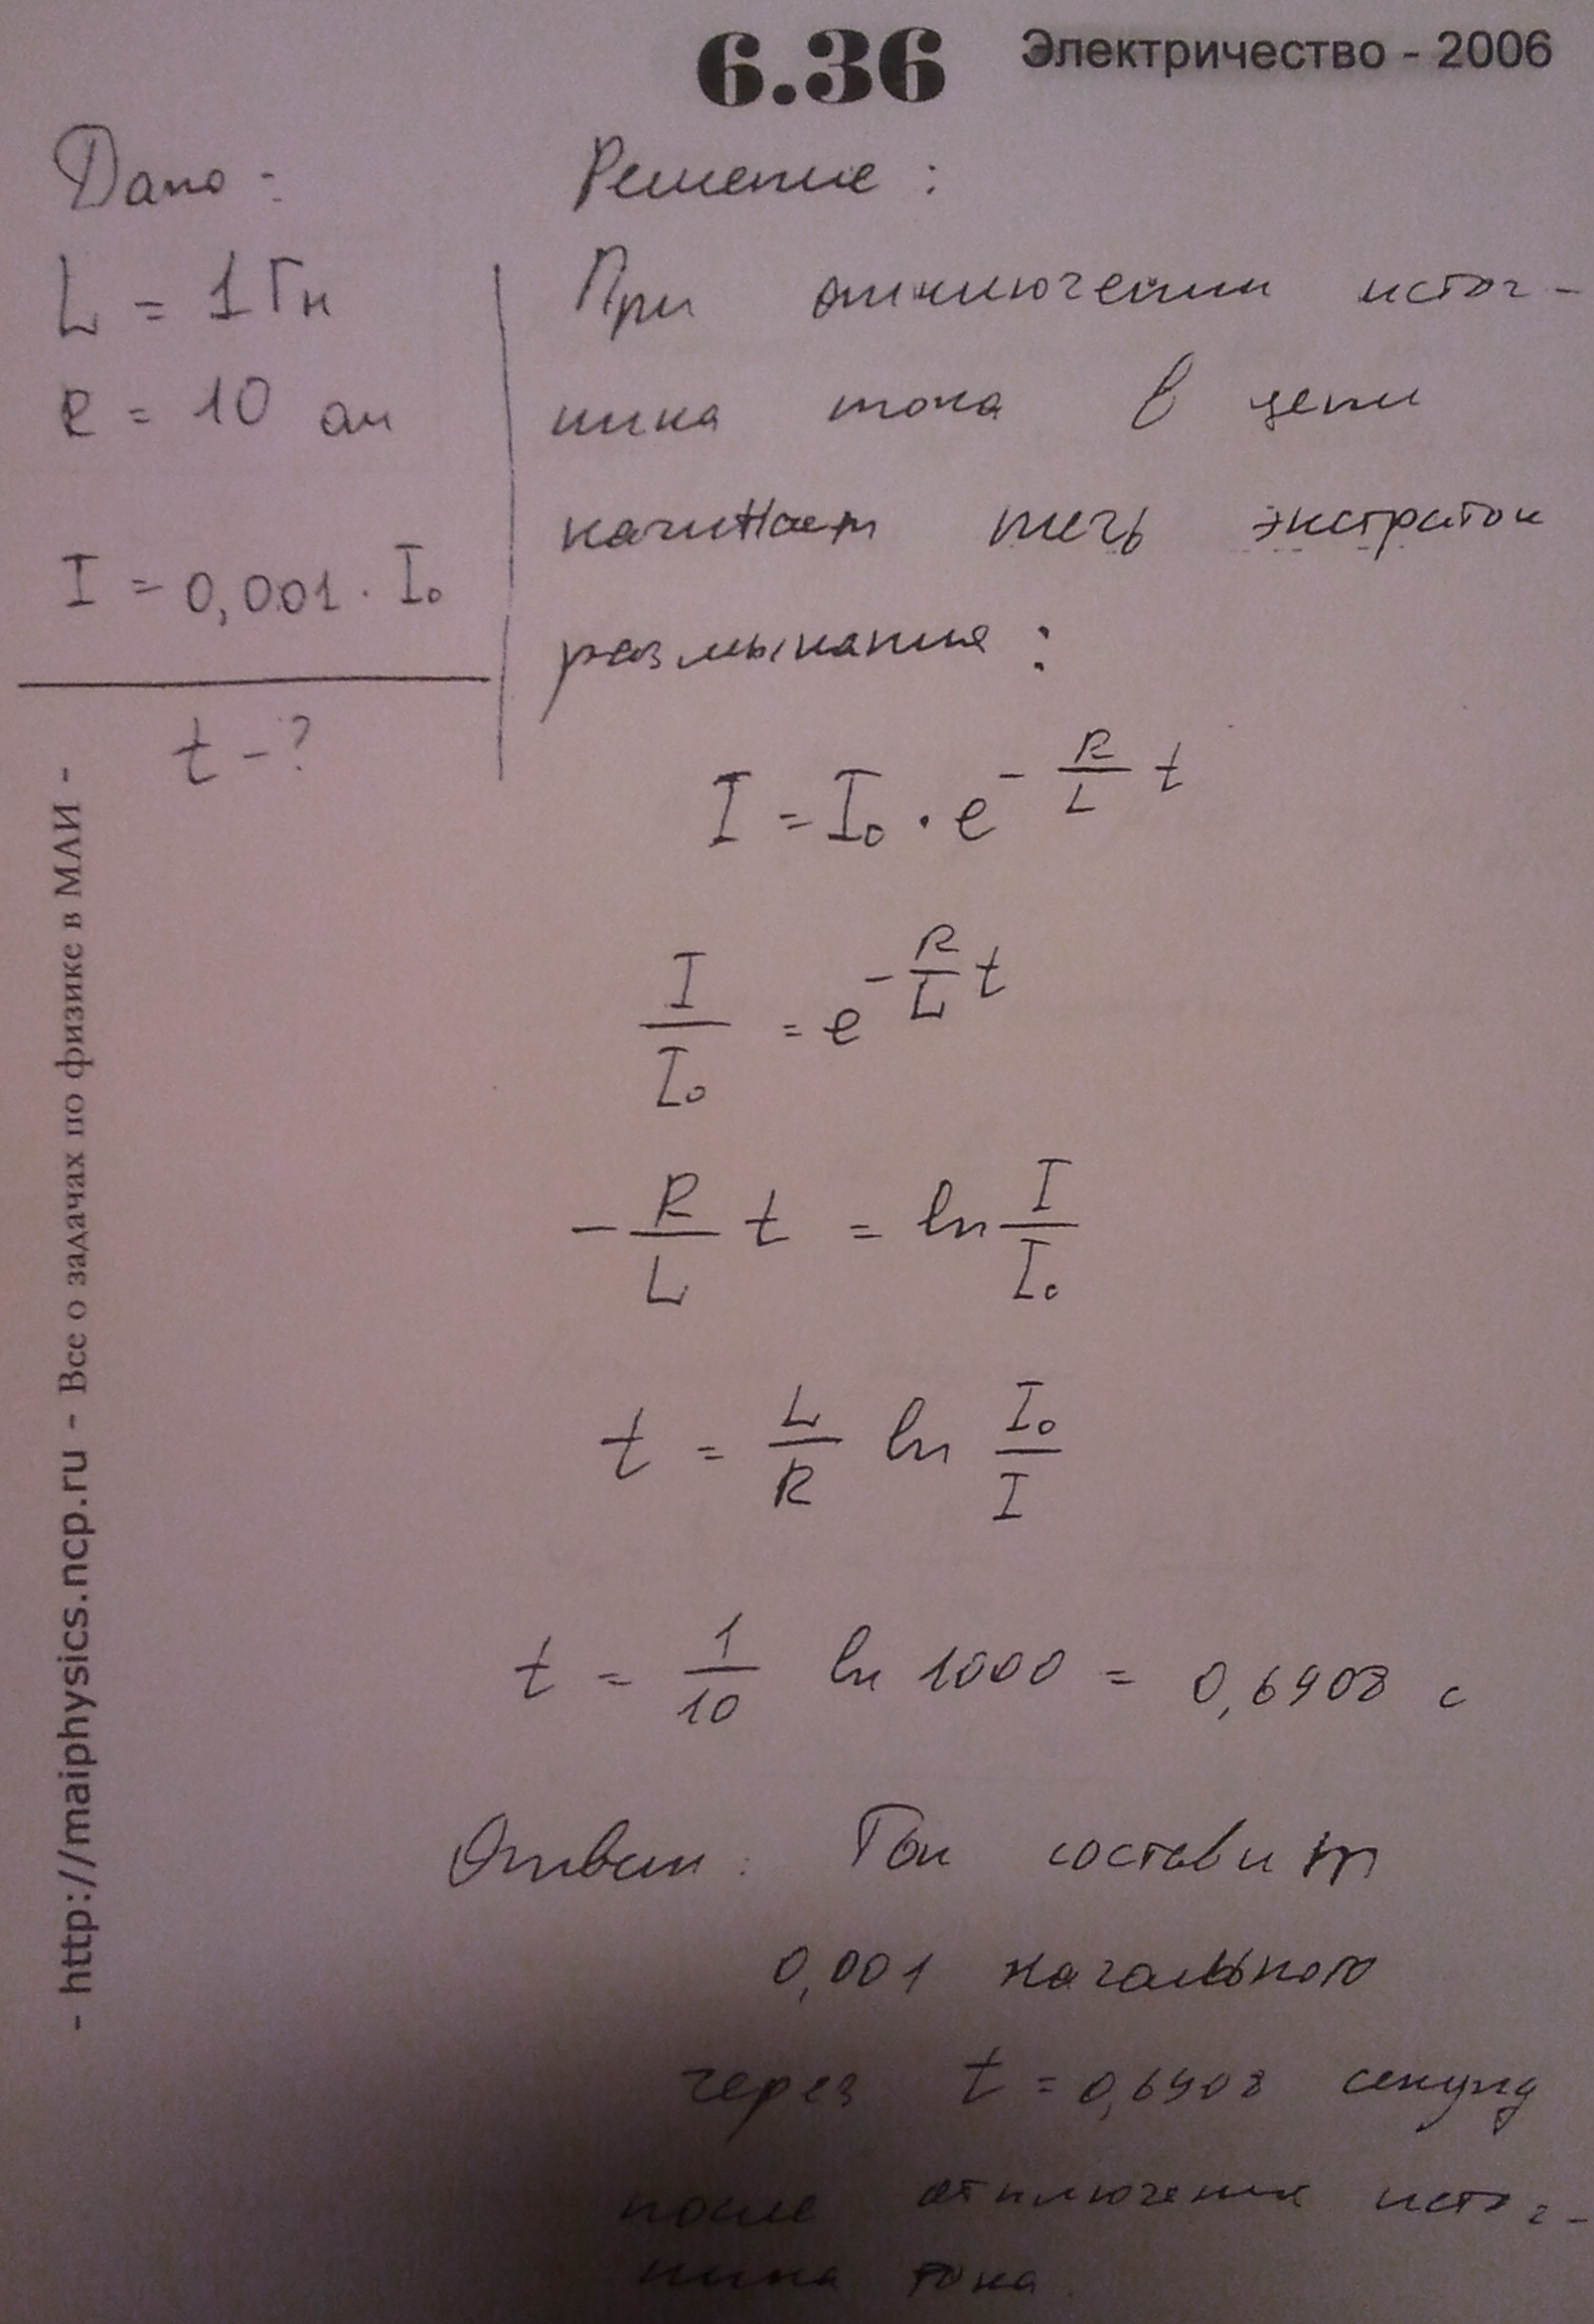 6.36 Электричество - 2006
Дано:
L = 1 Гн
R = 10 Ом
I = 0,001 · I₀
t - ?
Решение:
При отключении источ-
ника тока в цепи
начинает течь экстраток
размыкания:
I = I₀ · e^(-R/L t)
I/I₀ = e^(-R/L t)
-R/L t = ln I/I₀
t = L/R ln I₀/I
t = 1/10 ln 1000 = 0,6908 с
Ответ: Ток составит
0,001 начального
через t = 0,6908 секунд
после отключения источ-
ника тока
- http://maiphysics.ncp.ru - Все о задачах по физике в МАИ -